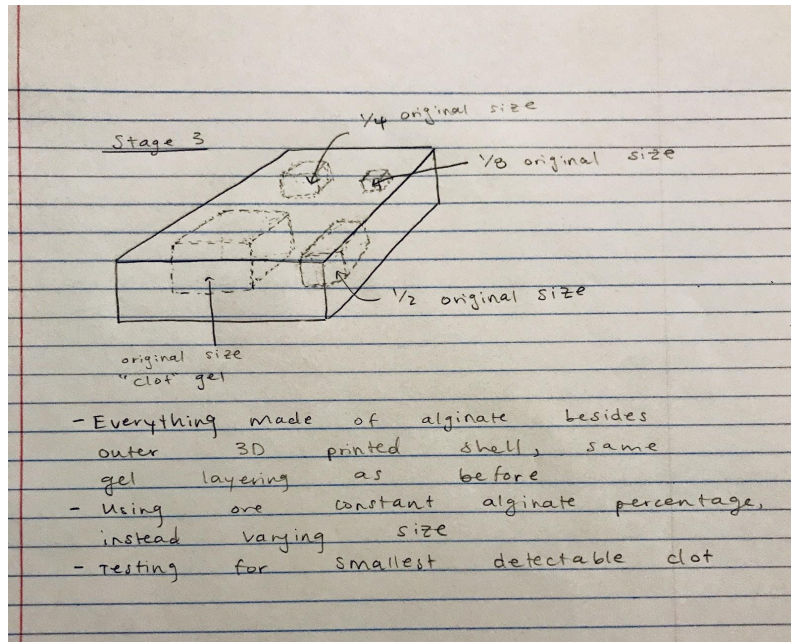 Stage 3
1/4 original size
1/8 original size
1/2 original size
original size
"clot" gel
- Everything made of alginate besides
outer 3D printed shell, same
gel layering as before
- Using one constant alginate percentage,
instead varying size
- Testing for smallest detectable clot